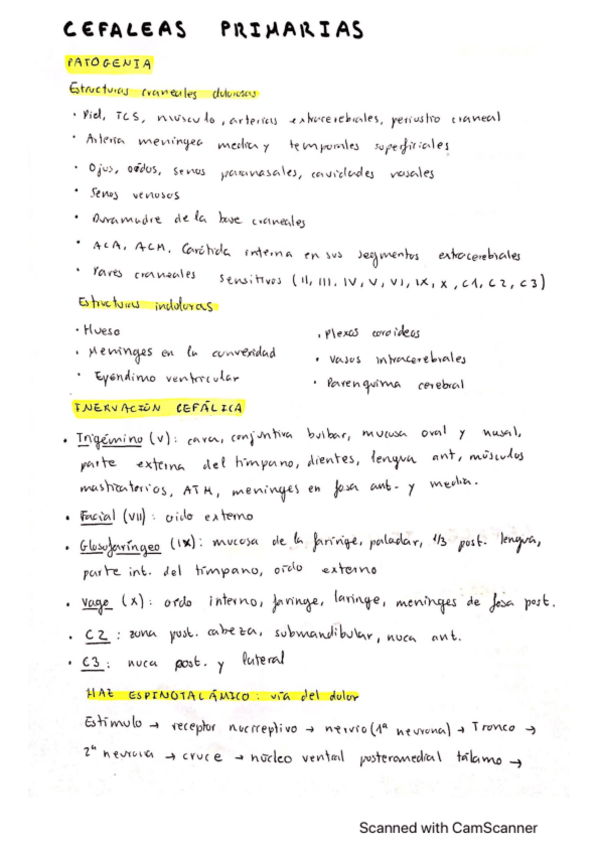 CEFALEAS PRIMARIAS
PATOGENIA
Estructuras craneales dolorosas
· Piel, TCS, músculo, arterias extracerebrales, periostio craneal
· Arteria meningea media y temporales superficiales
· Ojos, oídos, senos paranasales, cavidades nasales
· Senos venosos
· Duramadre de la base craneales
· ACA, ACM, Carótida interna en sus segmentos extracerebrales
· Pares craneales sensitivos (II, III, IV, V, VI, IX, X, C1, C2, C3)
Estructuras indoloras
· Hueso
· Meninges en la convexidad
· Epéndimo ventricular
· Plexos coroideos
· Vasos intracerebrales
· Parenquima cerebral
INERVACIÓN CEFÁLICA
· Trigémino (V): cara, conjuntiva bulbar, mucosa oral y nasal,
parte externa del tímpano, dientes, lengua ant, músculos
masticatorios, ATM, meninges en fosa ant. y media.
· Facial (VII): oido externo
· Glosofaríngeo (IX): mucosa de la faringe, paladar, 1/3 post. lengua,
parte int. del tímpano, oído externo
· Vago (X): oído interno, faringe, laringe, meninges de fosa post.
· C2: zona post. cabeza, submandibular, nuca ant.
· C3: nuca post. y lateral
HAZ ESPINOTALÁMICO: vía del dolor
Estímulo → receptor nociceptivo → nervio (1ª neurona) → Tronco →
2ª neurona → cruce → núcleo ventral posteromedial tálamo →
Scanned with CamScanner